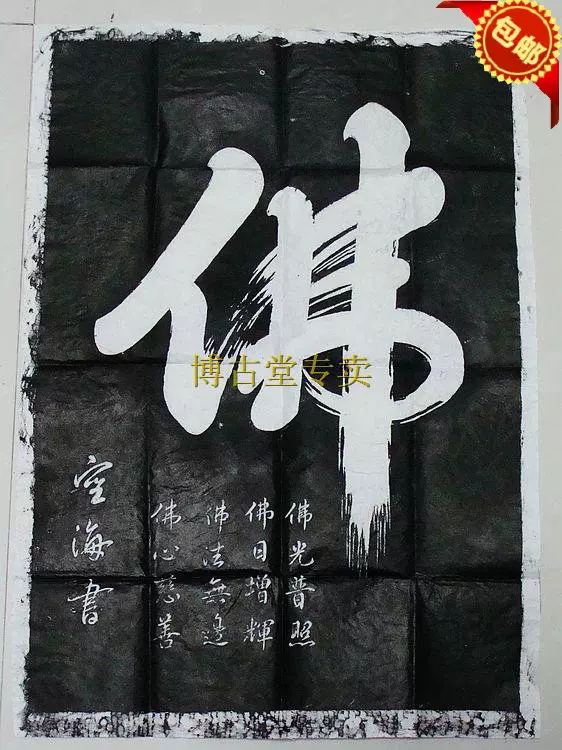 包邮
佛
博古堂专卖
佛光普照
佛日增輝
佛法無邊
佛心慈善
空海書